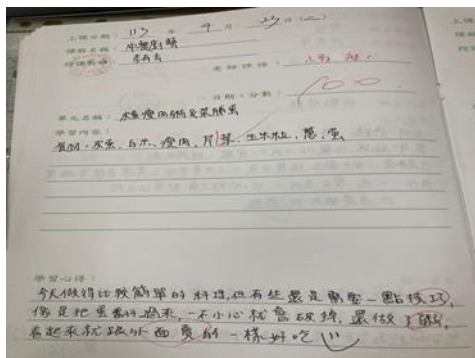 上課日期：113 年 9 月 23 日(二)
課程名稱：
授課教師：
老師評語：
日期、分數：100
單元名稱：皮蛋瘦肉粥&菜脯蛋
學習內容：
食材：皮蛋、白米、瘦肉、芹菜、玉米粒、蔥、蛋
學習心得：
今天做得比較簡單的料理，但有些還是需要一點技巧，
像是把蛋翻過來，一不小心就會破掉，還做了
看起來就跟外面賣的一樣好吃